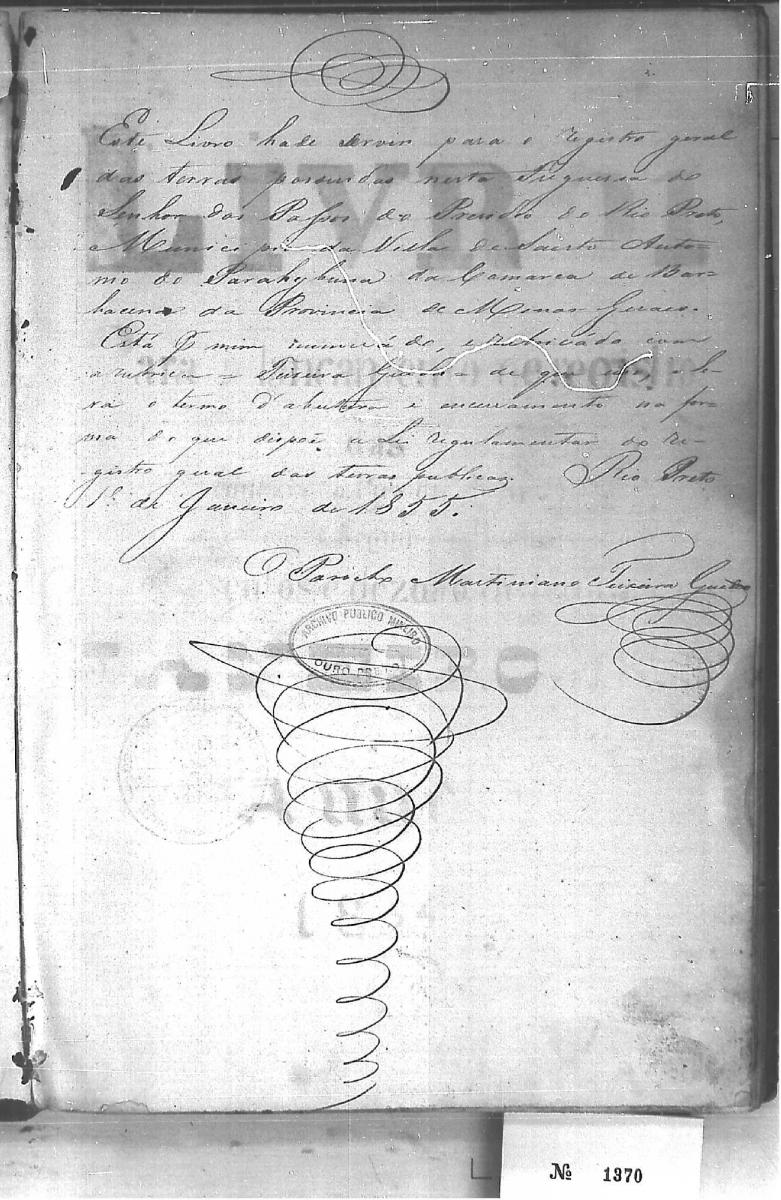 Este Livro hade servir para o registro geral
das terras possuidas nesta Freguesia do
Senhor dos Passos do Presidio do Rio Preto,
Municipio da Villa de Santo Anto-
nio do Parahybuna da Comarca de Bar-
bacena da Provincia de Minas Geraes.
Está p mim numerádo, e rubricado com
a rubrica = Teixeira Guedes = de que uso e le-
va o termo d'abertura e encerramento na for-
ma do que dispoe a Lei regulamentar do re-
gistro geral das terras publicas. Rio Preto
1º de Janeiro de 1855.
O Parocho Martiniano Teixeira Guedes
ARCHIVO PUBLICO MINEIRO
OURO PRETO
LIVR
1854
Nº 1370